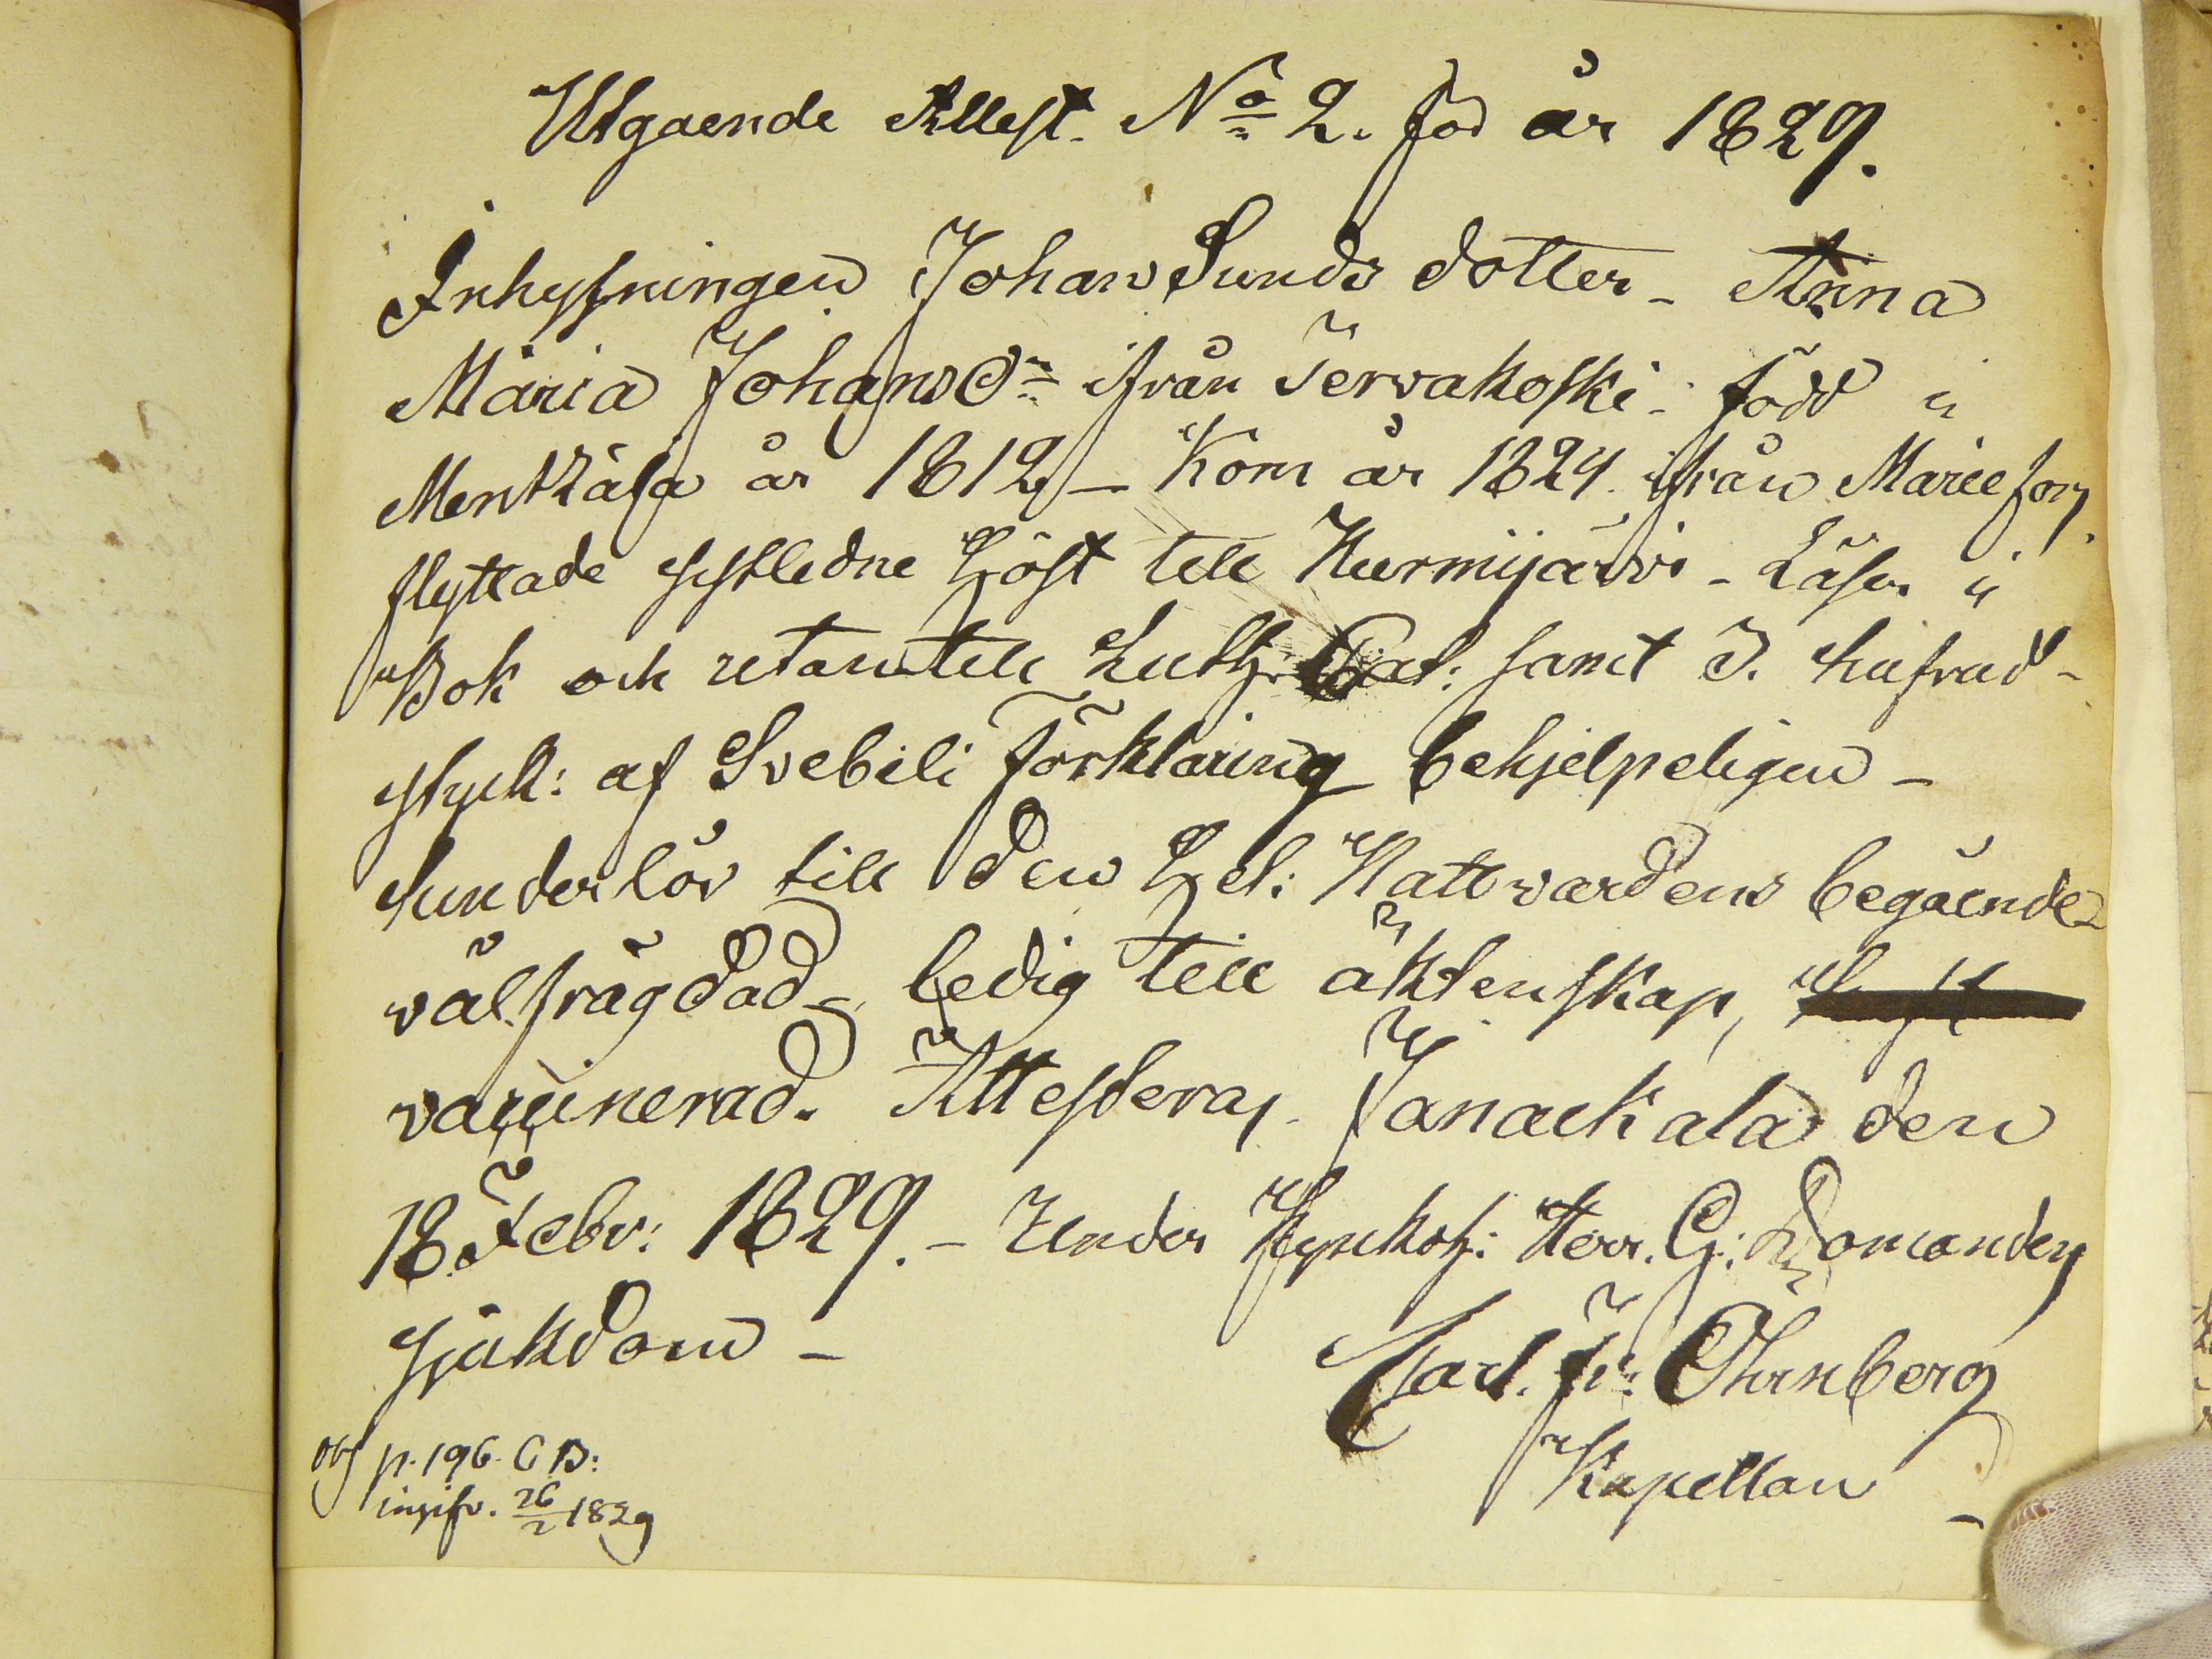 Utgaende Attest. No 2. för år 1829.
Inhysningen Johan Sunds dotter - Anna
Maria Johans Dr ifrån Terwakoski - född i
Mentzälä år 1812 - Kom år 1824 ifrån Marieforß
flyttade sistledne Höst till Nurmijärwi - Läser i
Bok och utantill Luth: Cat: samt 3. hufvud-
styck: af Svebili Förklaring behjelpeligen -
kunder lör till den Hel: Nattvardens begående
välfrägdad - ledig till äktenskap,
vaccinerad. Attesteras Janackala den
18 Febr: 1829. - Under Kyrkoh: Herr. G: Domanders
sjukdom -
Carl. Fr: Öhrnberg
Kapellan -
obs p. 196. C B:
inskr. 26/2 1829